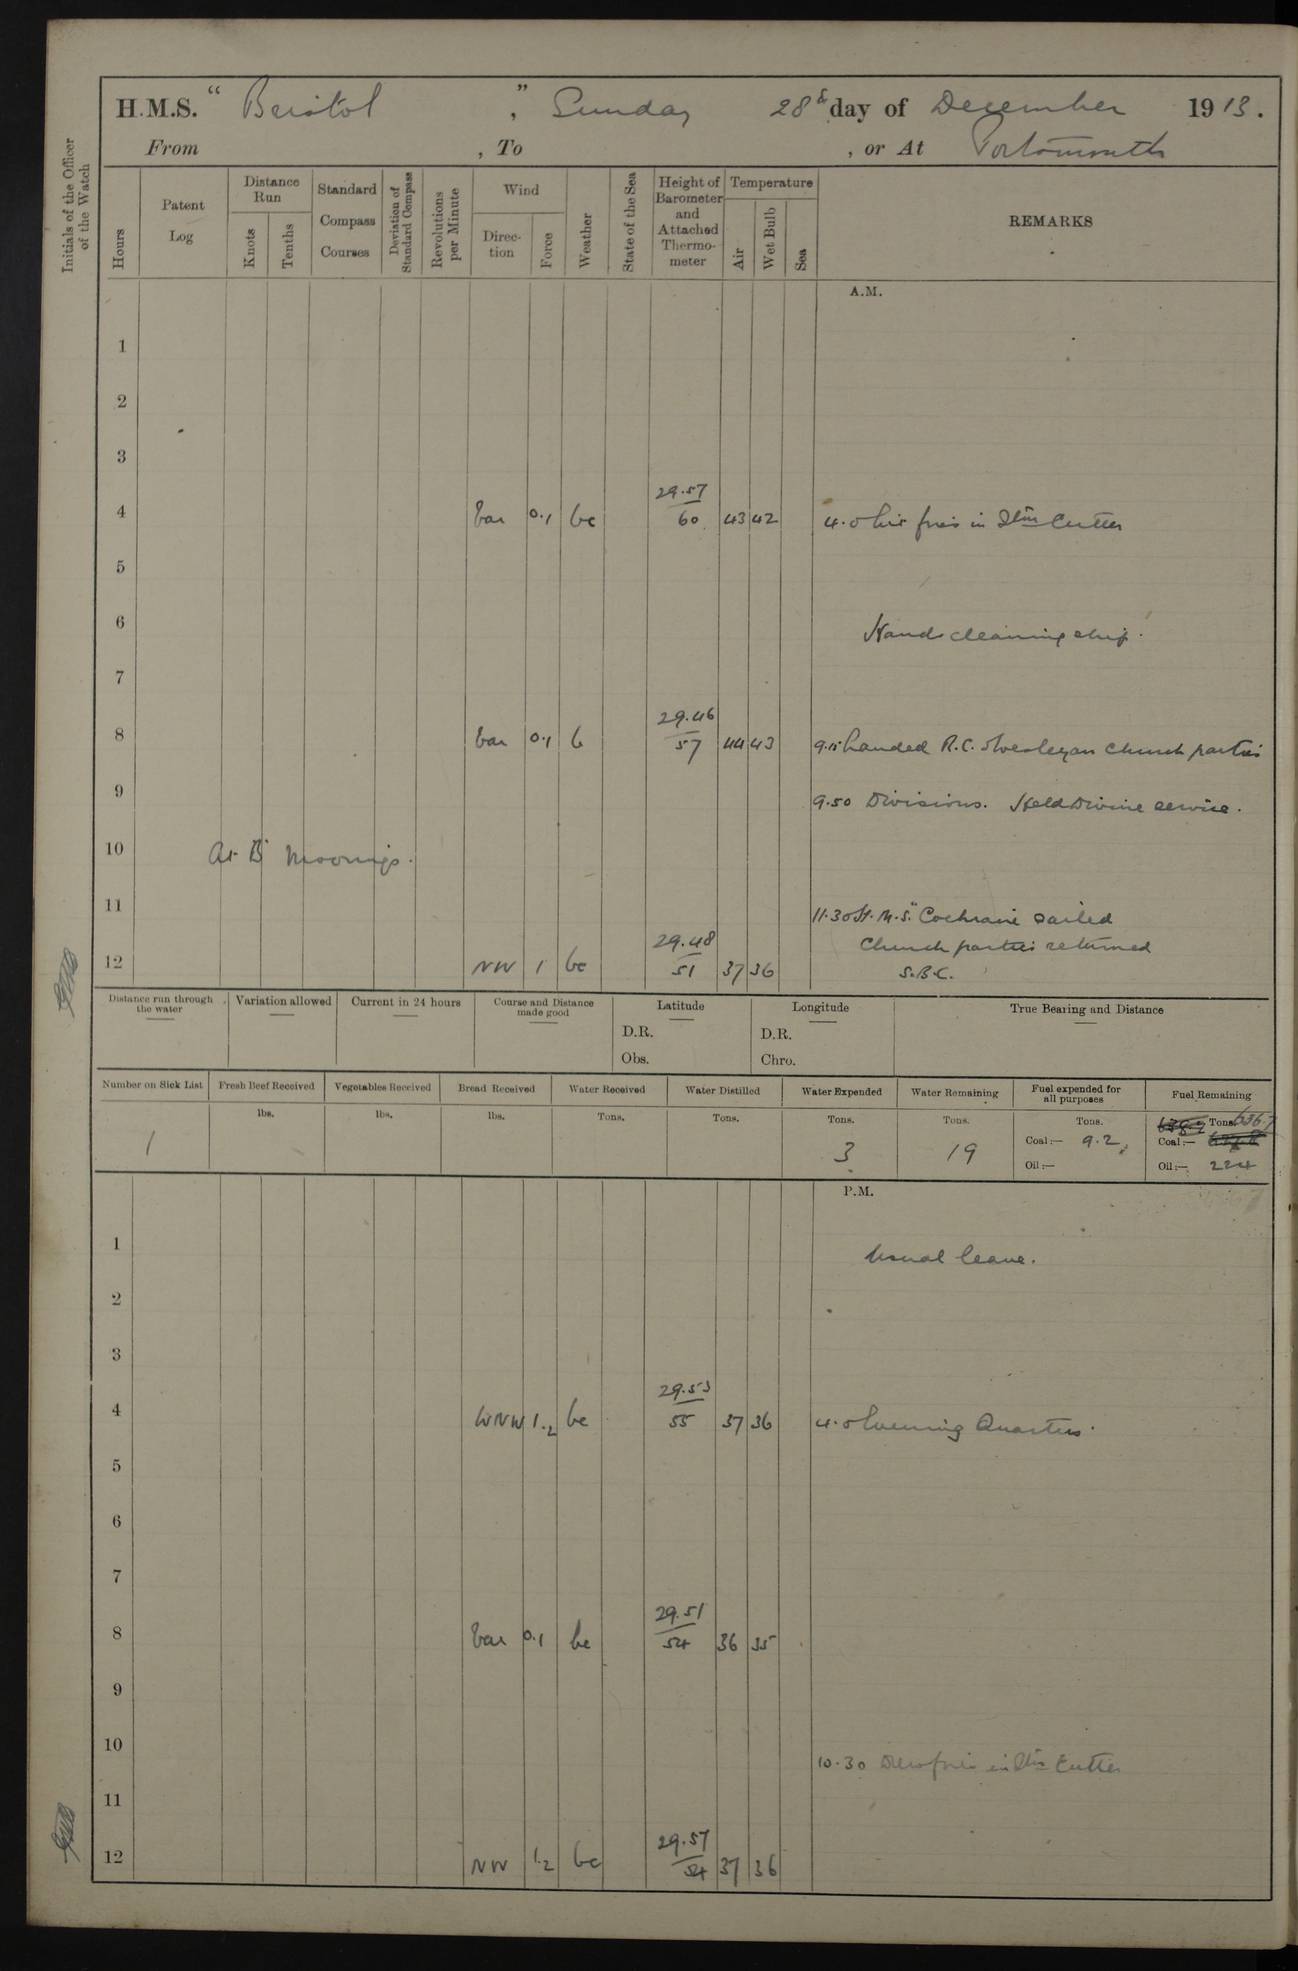 H.M.S. “ Bristol ”, Sunday 28th day of December 1913.
From , To , or At Portsmouth
Initials of the Officer of the Watch
Hours
Patent Log
Distance Run
Knots
Tenths
Standard Compass Courses
Deviation of Standard Compass
Revolutions per Minute
Wind
Direction
Force
Weather
State of the Sea
Height of Barometer and Attached Thermometer
Temperature
Air
Wet Bulb
Sea
REMARKS
A.M.
1
2
3
29.57
4 Var 0.1 bc 60 43 42 4.0 Lit fires in Stm Cutter
5
6 Hands cleaning ship.
7
29.46
8 Var 0.1 b 57 44 43 9.15 Landed R.C. & Wesleyan Church parties
9 9.50 Divisions. Held Divine service.
10 At B Moorings.
11 11.30 H.M.S. "Cochrane sailed
29.48 Church parties returned
12 NW 1 bc 51 37 36 S.B.C.
Distance run through the water
Variation allowed
Current in 24 hours
Course and Distance made good
Latitude
D.R.
Obs.
Longitude
D.R.
Chro.
True Bearing and Distance
Number on Sick List
Fresh Beef Received
Vegetables Received
Bread Received
Water Received
Water Distilled
Water Expended
Water Remaining
Fuel expended for all purposes
Fuel Remaining
lbs. lbs. lbs. Tons. Tons. Tons. Tons. Tons. Tons. 636.7
1 3 19 Coal:— 9.2 Coal:—
Oil:— Oil:— 224
P.M.
1 Usual leave.
2
3
29.53
4 WNW 1.2 bc 55 37 36 4.0 Evening Quarters.
5
6
7
29.51
8 Var 0.1 bc 54 36 35
9
10 10.30 Drew fires in Stm Cutter
11
29.57
12 NW 1.2 bc 54 37 36